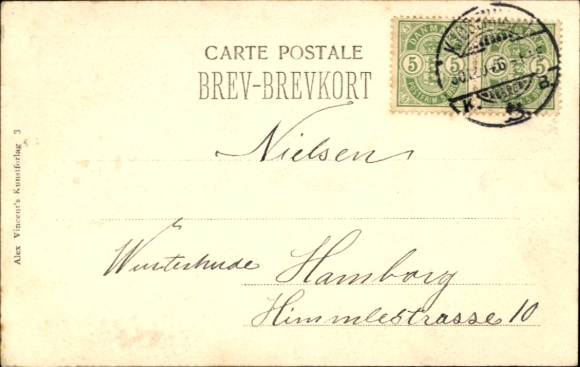 CARTE POSTALE
BREV-BREVKORT
DANMARK
5 5
5 5
K.
B.
Nielsen
Winterhude Hamborg
Himmlestrasse 10
Alex Vincent's Kunstforlag 3